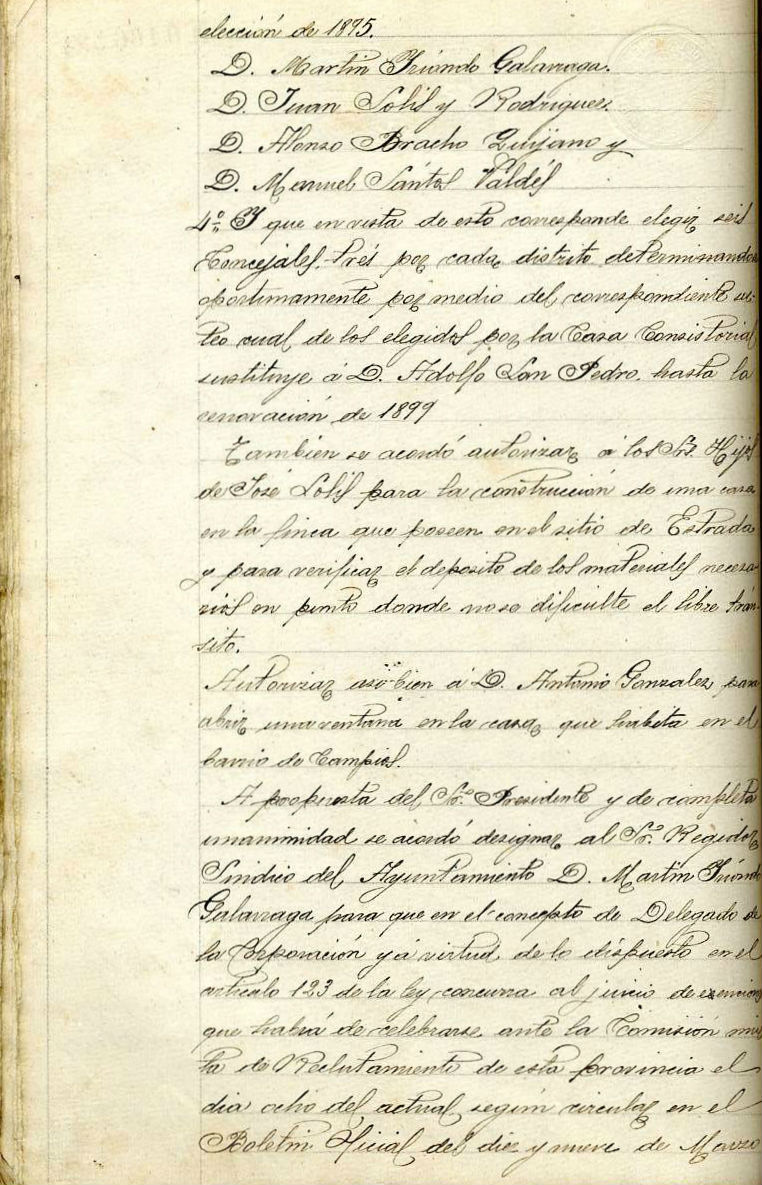 elección de 1895.
D. Martin Iriondo Galarraga.
D. Juan Solis y Rodriguez.
D. Alonso Bracho Quijano y
D. Manuel Sántos Valdés
4º Y que en vista de esto corresponde elegir seis
Concejales, trés por cada distrito determinandose
oportunamente por medio del correspondiente sor-
teo cual de los elegidos por la Casa Consistorial
sustituye á D. Adolfo San Pedro hasta la
renovación de 1899
Tambien se acordó autorizar á los Srs. Hijos
de José Solis para la construcción de una casa
en la finca que poseen en el sitio de Estrada
y para verificar el deposito de los materiales necesa
rios en punto donde no se dificulte el libre trán-
sito.
Autorizar aso-bien á D. Antonio Gonzalez para
abrir una ventana en la casa que habita en el
barrio de Campios.
A poopuesta del Sr. Presidente y de completa
unanimidad se acordó designar al Sr. Regidor
Sindico del Ayuntamiento D. Martin Iriondo
Galarraga para que en el concepto de Delegado de
la Corporación y á virtud de lo dispuesto en el
articulo 123 de la ley concurra al juicio de exenciones
que habrá de celebrarse ante la Comisión mix
ta de Reclutamiento de esta provincia el
dia ocho del actual segun circular en el
Boletin Oficial del diez y nueve de Marzo